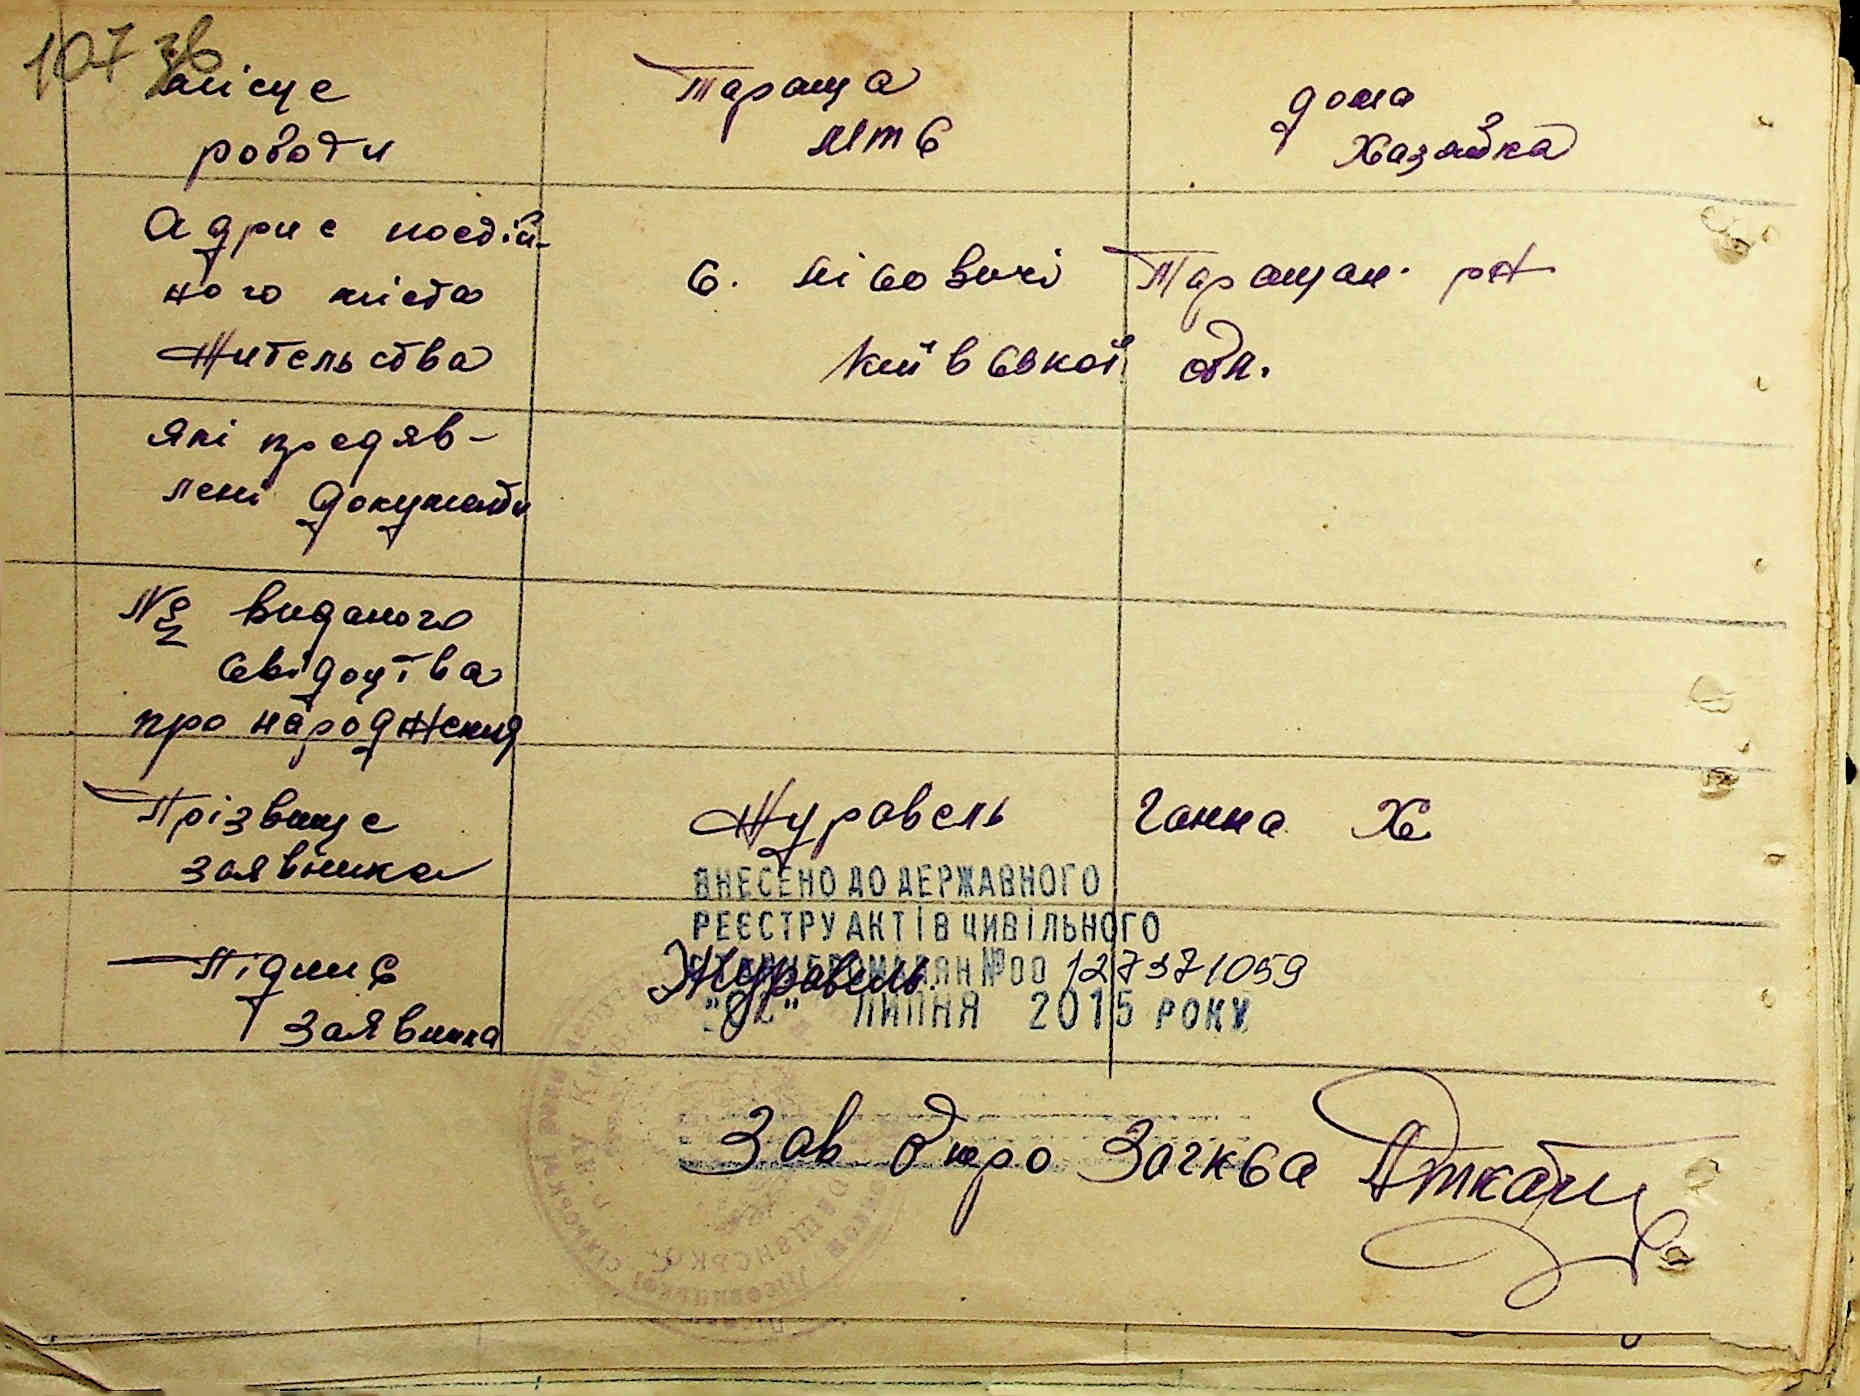 107 зв
місце
роботи
Тараща
МТС
дома
Хазяйка
Адрис постій-
ного міста
жительства
с. Лісовичі Таращан. р-н
Київської обл.
Які предяв-
лені документи
№ виданого
свідоцтва
про народження
Прізвище
заявника
Журавель Ганна Х
ВНЕСЕНО ДО ДЕРЖАВНОГО
РЕЄСТРУ АКТІВ ЦИВІЛЬНОГО
СТАНУ ГРОМАДЯН №00 127371059
"02" ЛИПНЯ 2015 РОКУ
Підпис
заявника
Журавель.
Зав бюро Загкса